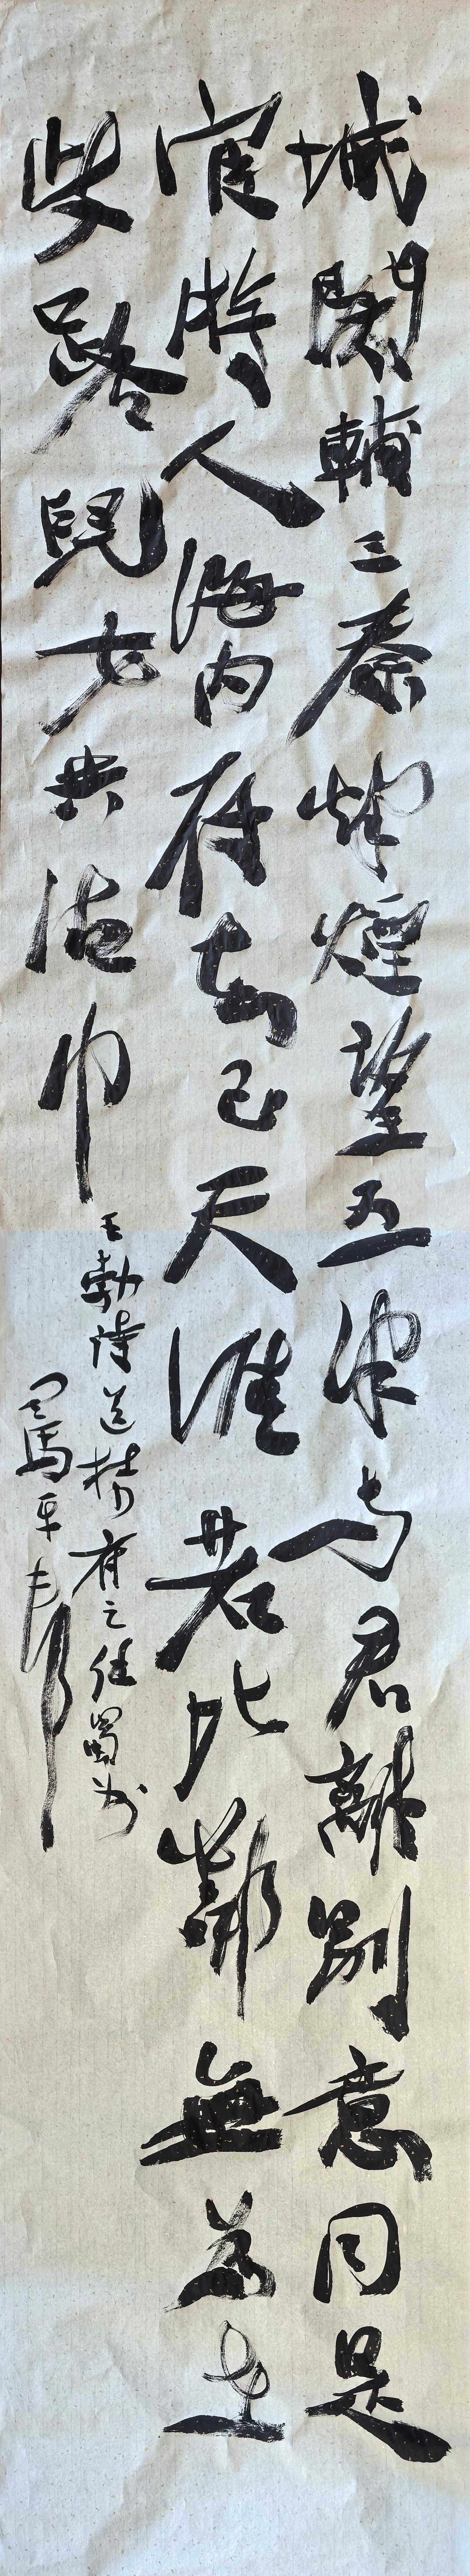 城闕輔三秦烽煙望五津与君離别意同是
宦游人海内存知己天涯若比鄰無為在
歧路兒女共沾巾
王勃詩送杜少府之任蜀州
司馬平